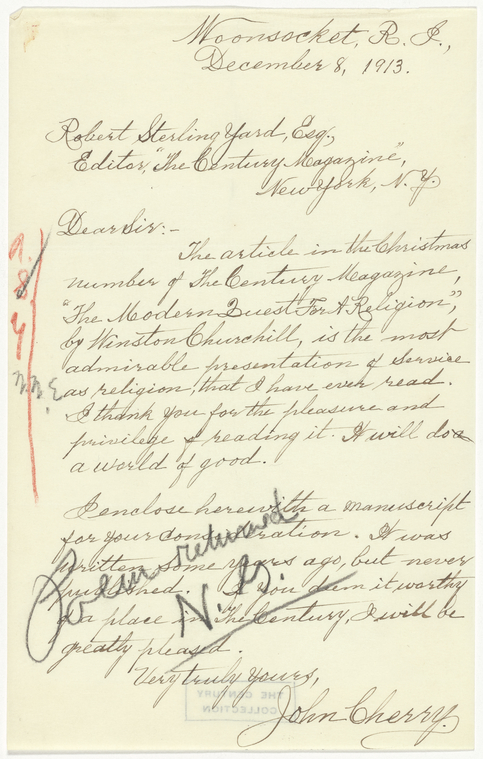 Woonsocket, R. I.,
December 8, 1913.
Robert Sterling Yard, Esq.,
Editor, "The Century Magazine",
New York, N. Y.
Dear Sir:-
The article in the Christmas
number of The Century Magazine,
"The Modern Quest For A Religion",
by Winston Churchill, is the most
admirable presentation of service
as religion, that I have ever read.
I thank you for the pleasure and
privilege of reading it. It will do a
a world of good.
I enclose herewith a manuscript
for your consideration. It was
written some years ago, but never
published. If you deem it worthy
of a place in The Century, I will be
greatly pleased.
Very truly yours,
John Cherry.
Poem returned
THE CENTURY
COLLECTION